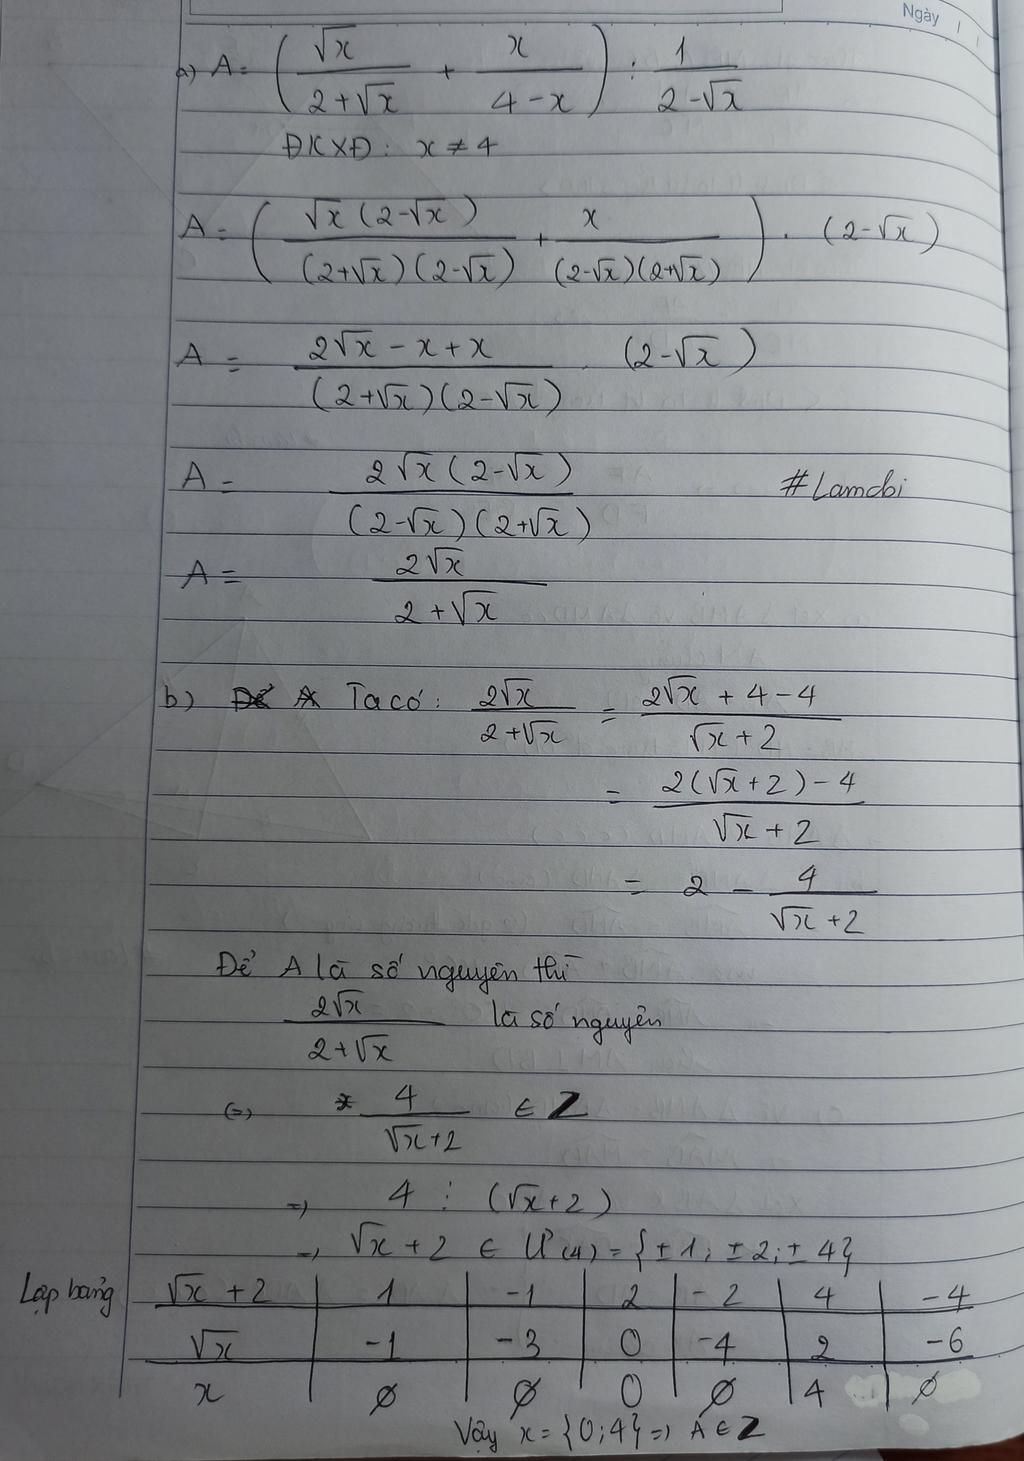 Ngày
a) A = (√x / (2+√x) + x / (4-x)) : 1 / (2-√x)
ĐKXĐ: x ≠ 4
A = (√x(2-√x) / ((2+√x)(2-√x)) + x / ((2-√x)(2+√x))) . (2-√x)
A = (2√x - x + x) / ((2+√x)(2-√x)) . (2-√x)
A = 2√x(2-√x) / ((2-√x)(2+√x)) #Lamcbi
A = 2√x / (2+√x)
b) Để A Ta có: 2√x / (2+√x) = (2√x + 4 - 4) / (√x + 2)
= (2(√x+2) - 4) / (√x + 2)
= 2 - 4 / (√x + 2)
Để A là số nguyên thì
2√x / (2+√x) là số nguyên
(=) 4 / (√x+2) ∈ Z
=) 4 ⋮ (√x+2)
=) √x + 2 ∈ Ư(4) = {±1; ±2; ±4}
Lập bảng √x + 2 | 1 | -1 | 2 | -2 | 4 | -4
√x | -1 | -3 | 0 | -4 | 2 | -6
x | ∅ | ∅ | 0 | ∅ | 4 | ∅
Vậy x = {0; 4} =) A ∈ Z